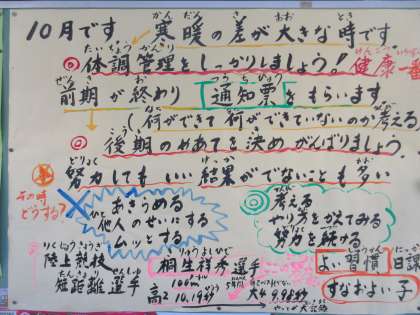 10月です 寒暖の差が大きな時です
◎体調管理をしっかりしましょう！健康一番
前期が終わり 通知票をもらいます
(何ができて何ができていないのか考える
◎後期のめあてを決めがんばりましょう。
努力してもいい結果がでないことも多い
その時どうする？
あきらめる
他人のせいにする
ムッとする
考える
やり方をかえてみる
努力を続ける
陸上競技
短距離選手
桐生祥秀選手
100m
高2 10.19秒
大4 9.98秒
よい習慣
日課
すなおよい子